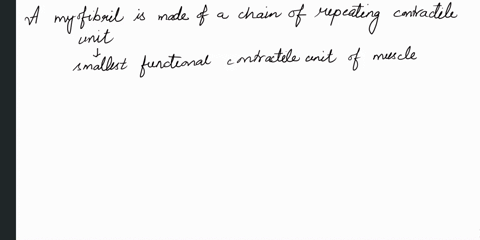 A myofibril is made of a chain of repeating contractile
unit
↓
smallest functional contractele unit of muscle